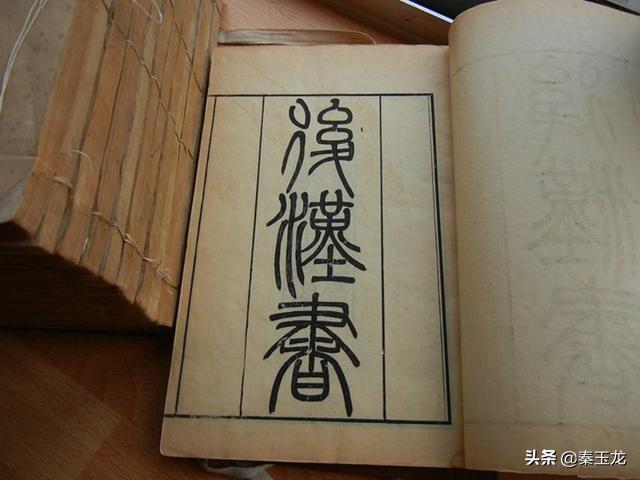 後漢書
头条 @秦玉龙